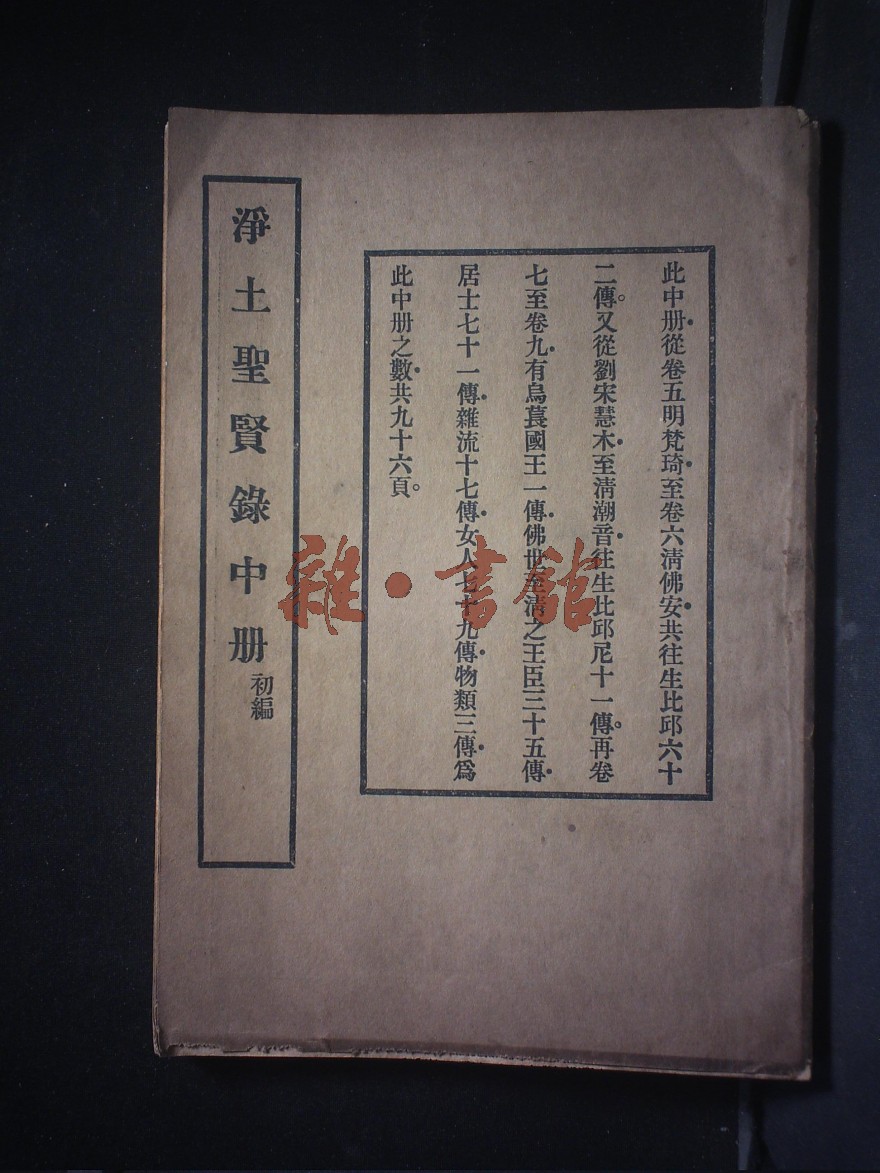 此中册從卷五明梵琦至卷六淸佛安共往生比邱六十
二傳。又從劉宋慧木至淸潮音往生比邱尼十一傳。再卷
七至卷九有烏萇國王一傳佛世至淸之王臣三十五傳
居士七十一傳雜流十七傳女人七十九傳物類三傳爲
此中册之數共九十六頁。
淨土聖賢錄中册
初編
雜·書館